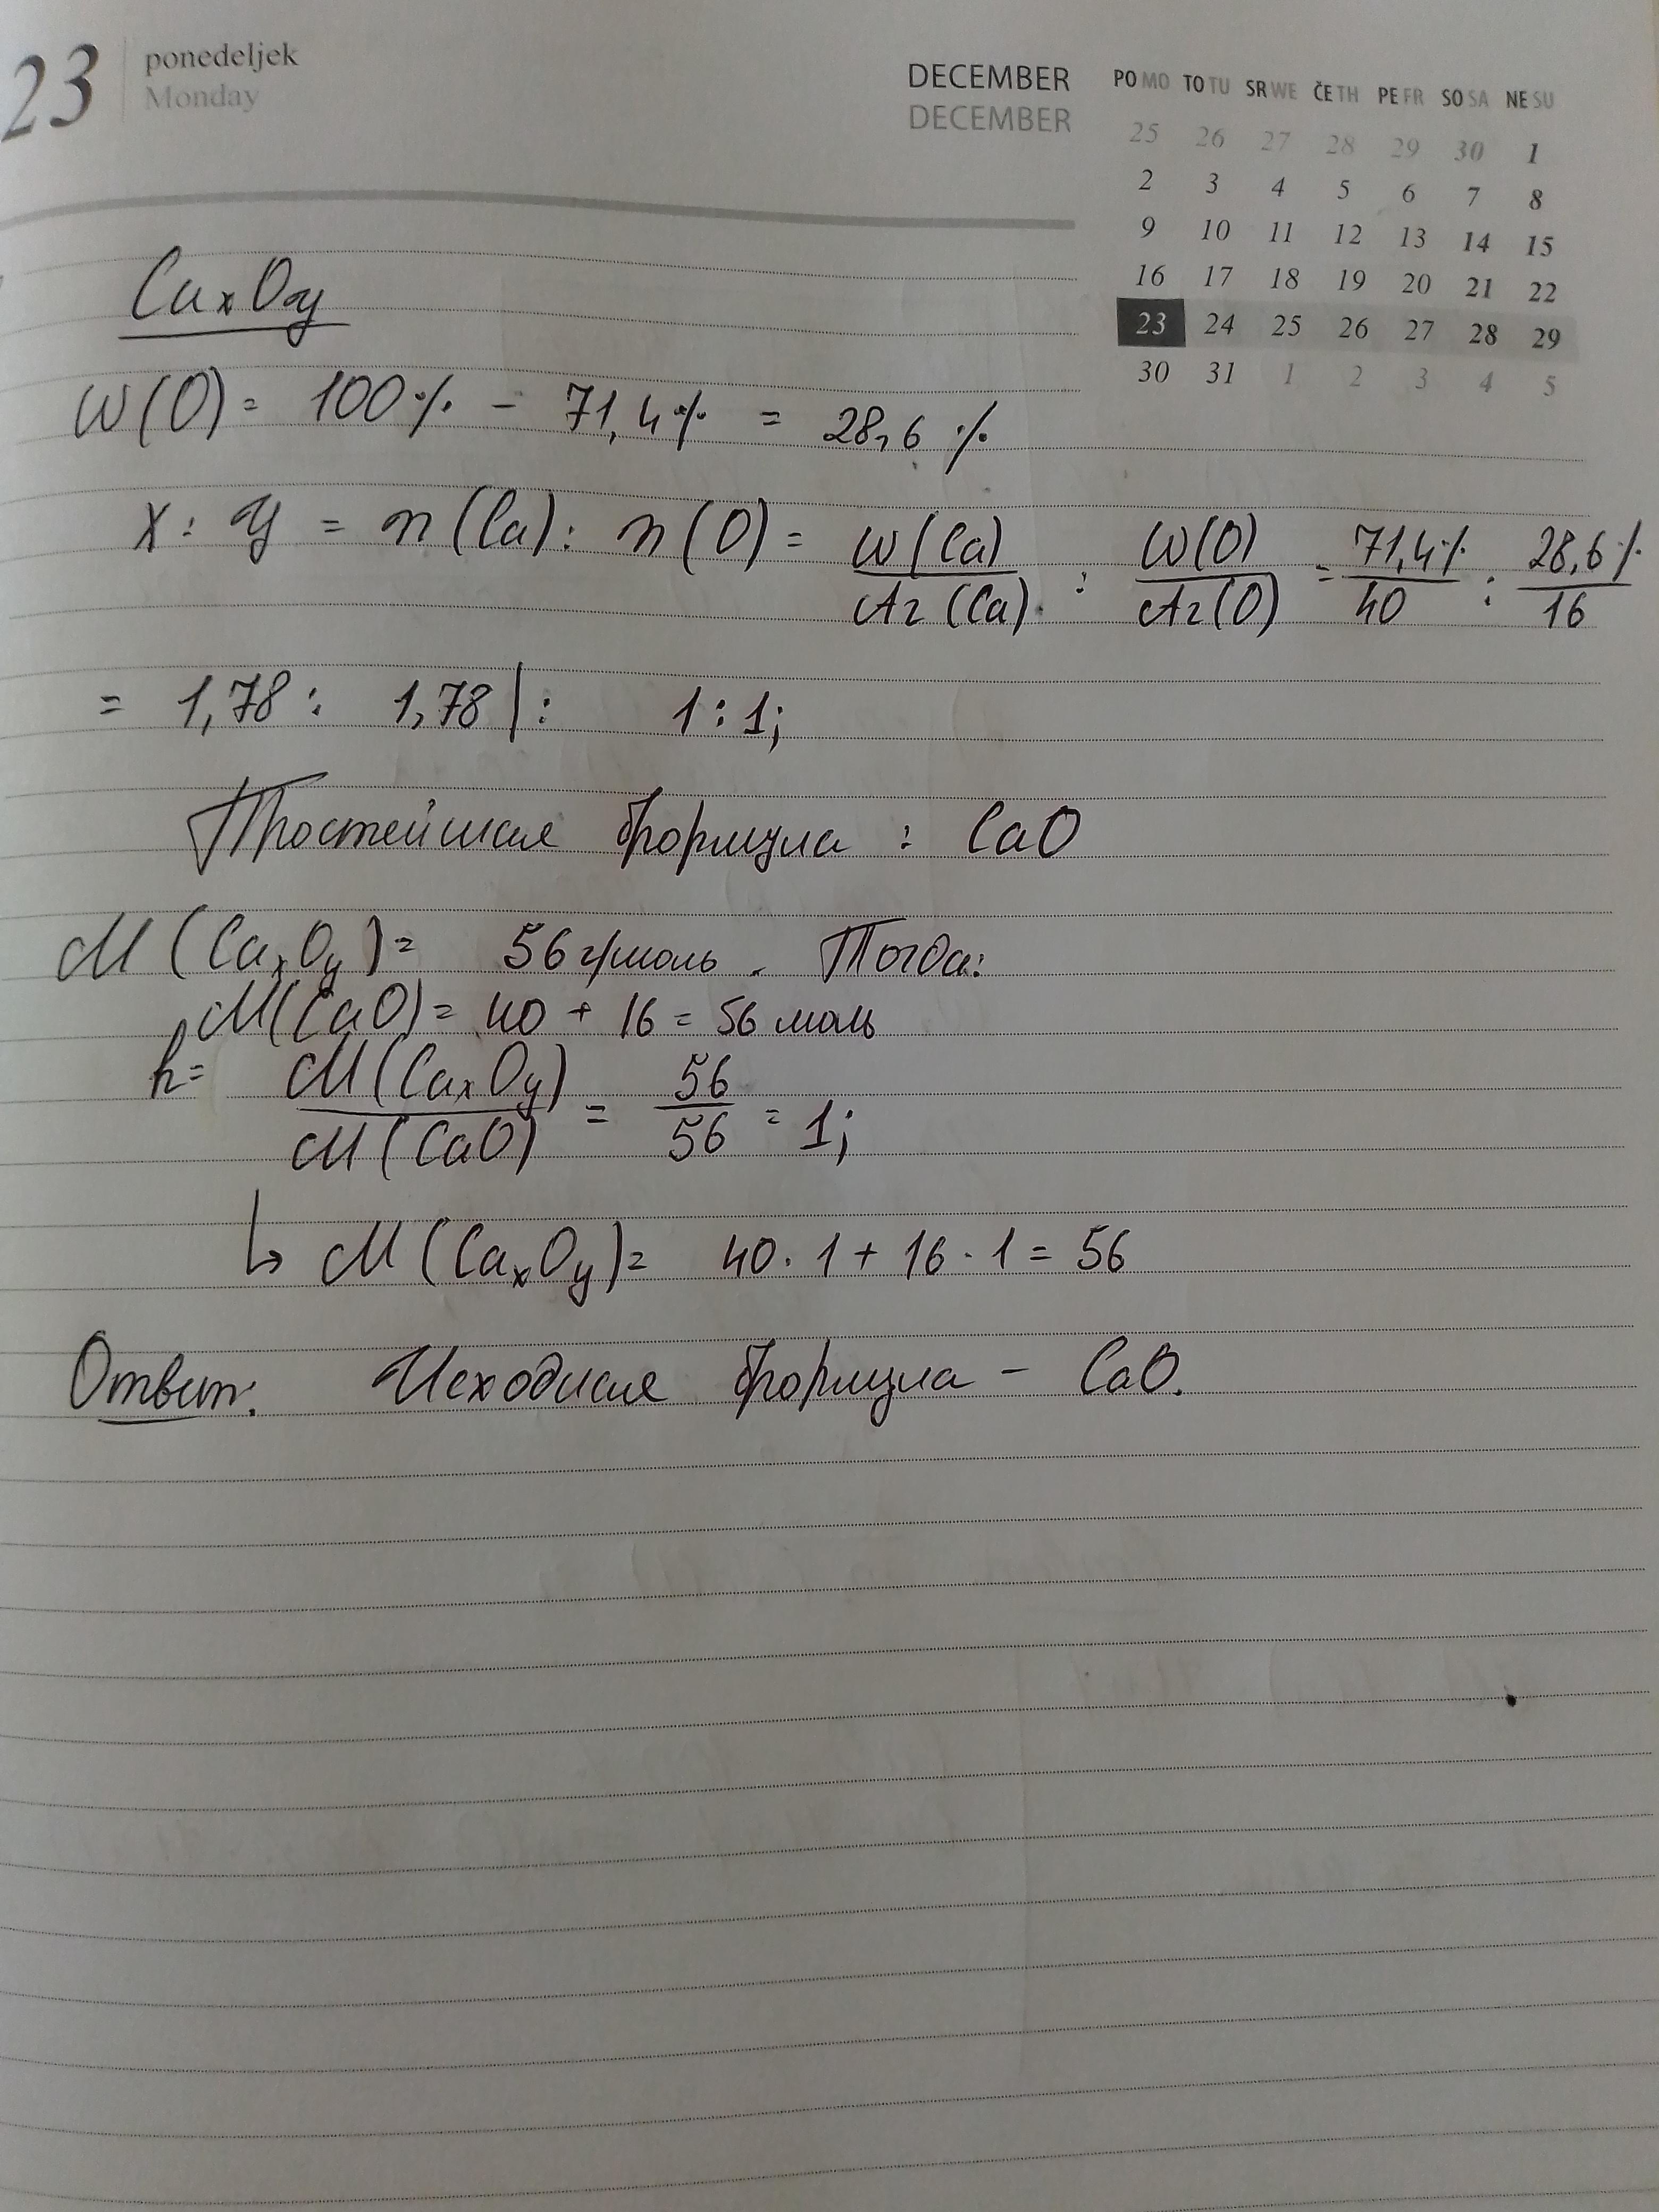 23 ponedeljek
Monday
DECEMBER
DECEMBER
PO MO TO TU SR WE ČE TH PE FR SO SA NE SU
25 26 27 28 29 30 1
2 3 4 5 6 7 8
9 10 11 12 13 14 15
16 17 18 19 20 21 22
23 24 25 26 27 28 29
30 31 1 2 3 4 5
CaxOy
W(O) = 100% - 71,4% = 28,6 %
X : y = n(Ca) : n(O) = W(Ca)/Ar(Ca) : W(O)/Ar(O) = 71,4%/40 : 28,6%/16
= 1,78 : 1,78 | : 1 : 1;
Простейшая формула : CaO
M(CaxOy) = 56 г/моль. Тогда:
M(CaO) = 40 + 16 = 56 моль
n = M(CaxOy)/M(CaO) = 56/56 = 1;
↳ M(CaxOy) = 40 · 1 + 16 · 1 = 56
Ответ: Исходная формула - CaO.